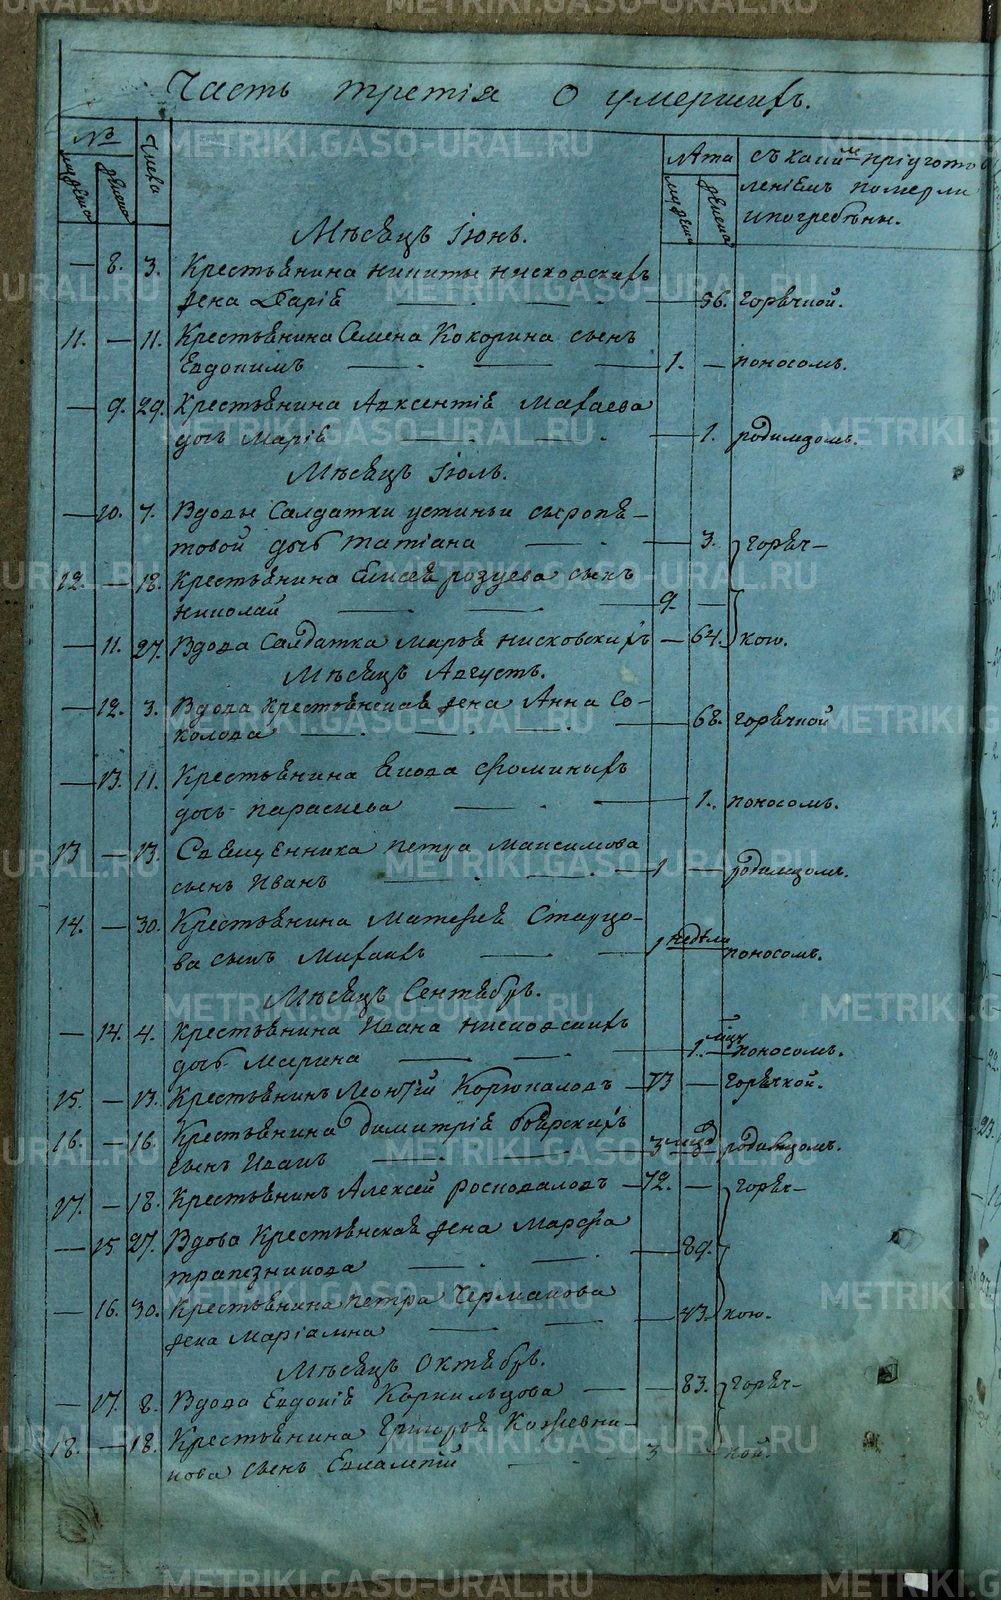 Часть третія О умершихъ.
№
Числа
мужеска
женска
Лѣта
мужеска
женска
съ какимъ пріугото
леніемъ померли
ипогребѣны.
Мѣсяцъ Іюнь.
— 8. 3. Крестьянина Никиты Нисковскихъ
жена Дарія — 56. горячкой.
11. — 11. Крестьянина Семена Кокорина сынъ
Евдокимъ — 1. — поносомъ.
— 9. 29. Крестьянина Авксентія Макаева
дочь Марія — 1. родимцомъ.
Мѣсяцъ Іюль.
— 10. 7. Вдовы Салдатки Устиньи Сыропя-
товой дочь Татіана — 3. горяч-
12. — 18. Крестьянина Елисея Розуева сынъ
Николай — 9. —
— 11. 27. Вдова Салдатка Марья Нисковскихъ — 64. кою.
Мѣсяцъ Августъ.
— 12. 3. Вдова крестьянская жена Анна Со-
колова — 68. горячкой
— 13. 11. Крестьянина Якова Фоминыхъ
дочь Параскева — 1. поносомъ.
13 — 13. Священника Петра Максимова
сынъ Иванъ — 1 — родимцомъ.
14. — 30. Крестьянина Матфея Старцо-
ва сынъ Михаилъ — 1 недѣля поносомъ.
Мѣсяцъ Сентябрь.
— 14. 4. Крестьянина Ивана Нисковскихъ
дочь Марина — 1. мцъ поносомъ.
15. — 13. Крестьянинъ Леонтій Корюкаловъ — 73 — горячкой.
16. — 16 Крестьянина Димитрія Боярскихъ
сынъ Иванъ — 3 мцa родимцомъ.
17. — 18. Крестьянинъ Алексей Росковаловъ — 72. — горяч-
— 15 27. Вдова Крестьянская жена Марфа
трапезникова — 89.
— 16. 30. Крестьянина Петра Чермакова
жена Маріамна — 43. кою.
Мѣсяцъ Октябрь.
— 17. 8. Вдова Евдокія Корнильцова — 83. горяч-
18. — 18. Крестьянина Григорья Кожевни-
кова сынъ Евлампій — 3 — кой.
METRIKI.GASO-URAL.RU